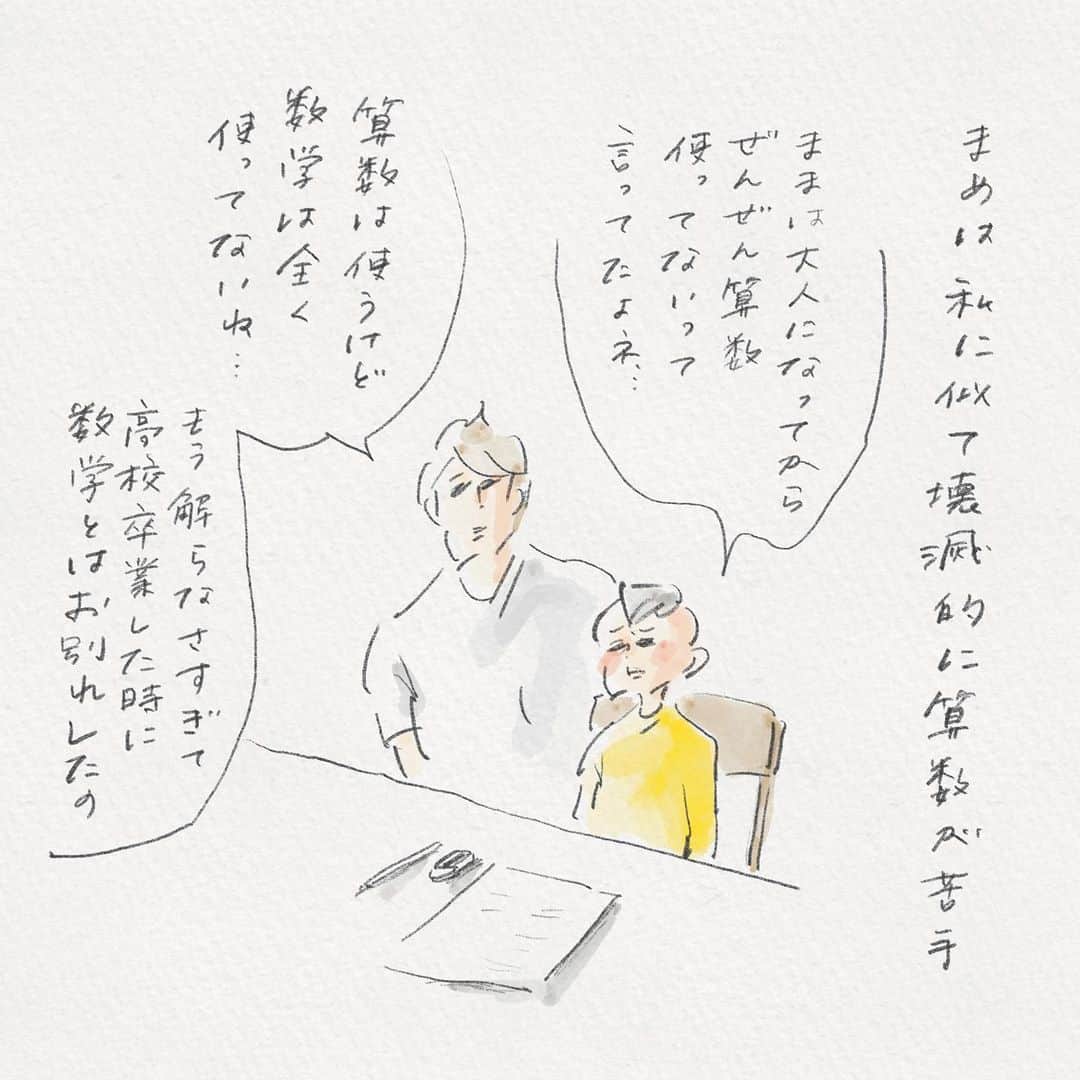 まめは私に似て壊滅的に算数が苦手
ままは大人になってから
ぜんぜん算数
使ってないって
言ってたよネ…
算数は使うけど
数学は全く
使ってないね…
もう解らなさすぎて
高校卒業した時に
数学とはお別れしたの